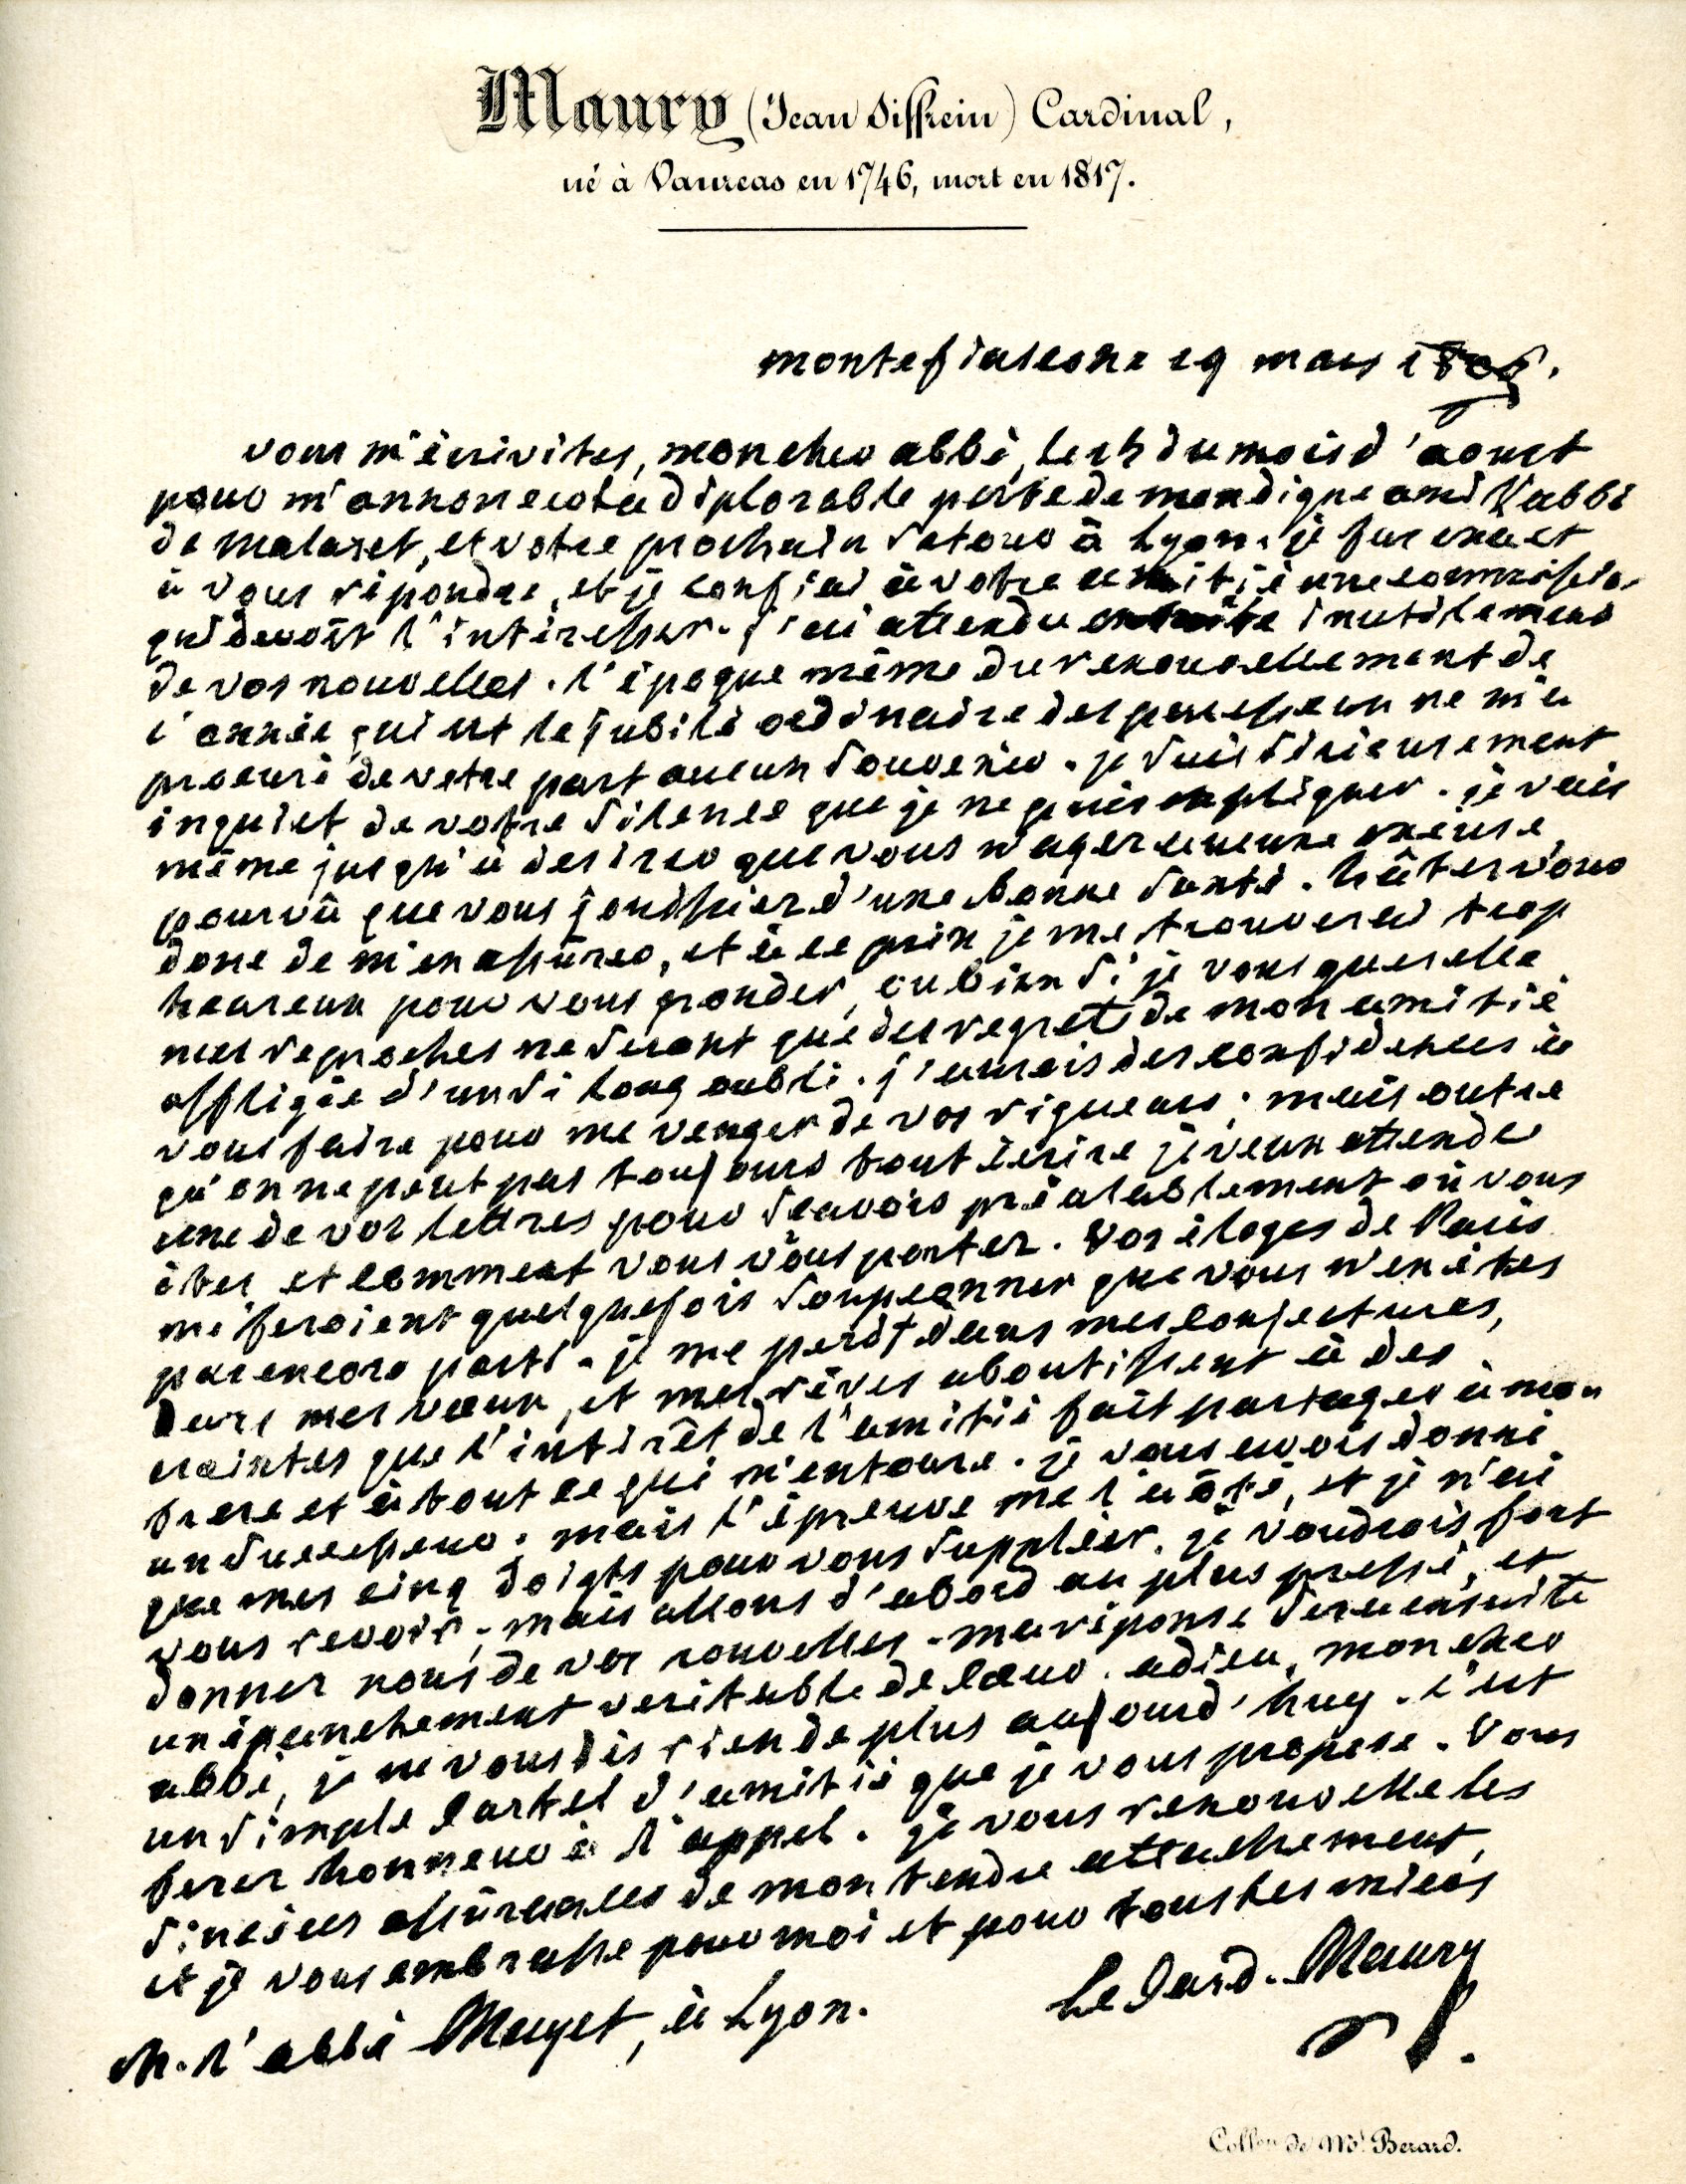 Maury (Jean Siffrein) Cardinal,
né à Vaureas en 1746, mort en 1817.
montefiascone 29 mars
vous m'écrivites, mon cher abbé, le du mois d'aoust
pour m'annoncer la déplorable perte de mon digne ami l'abbé
de malaret, et votre prochain retour à Lyon. je fus exact
à vous répondre, et je confiai à votre amitié une commission
qui devoit l'intéresser. j'ai attendu ensuite inutilement
de vos nouvelles. l'époque même du renouvellement de
l'année qui est le jubilé ordinaire des paresseux ne m'a
procuré de votre part aucun souvenir. je suis sérieusement
inquiet de votre silence que je ne puis expliquer. je vais
même jusqu'à desirer que vous n'ayez aucune excuse
pourvû que vous jouissiez d'une bonne santé. hâtez vous
donc de m'en assurer, et à ce prix je me trouverai trop
heureux pour vous gronder, ou bien si je vous querelle
mes reproches ne seront que des regrets de mon amitié
affligée d'un si long oubli. j'aurois des confidences à
vous faire pour me venger de vos rigueurs; mais outre
qu'on ne peut pas toujours tout écrire je veux attendre
une de vos lettres pour sçavoir préalablement où vous
êtes, et comment vous vous portez. vos éloges de Paris
me feroient quelquefois soupçonner que vous n'en êtes
pas encore parti. je me perds dans mes conjectures,
dans mes vœux, et mes rêves aboutissent à des
craintes que l'intérêt de l'amitié fait partager à mon
frere et à tout ce qui m'entoure. je vous avois donné
un successeur. mais l'épreuve me l'a ôté, et je n'ai
que mes cinq doigts pour vous suppléer. je voudrois fort
vous revoir; mais allons d'abord au plus pressé, et
donnez nous de vos nouvelles. ma réponse sera ensuite
un épanchement veritable de cœur. adieu, mon cher
abbé, je ne vous dis rien de plus aujourd'huy. c'est
un simple cartel d'amitié que je vous propose. vous
ferez honneur à l'appel. je vous renouvelle les
sincères assurances de mon tendre attachement,
et je vous embrasse pour moi et pour tous les miens
Le Card. Maury
M. l'abbé Mayet, à Lyon.
Collon de Mr Berard.